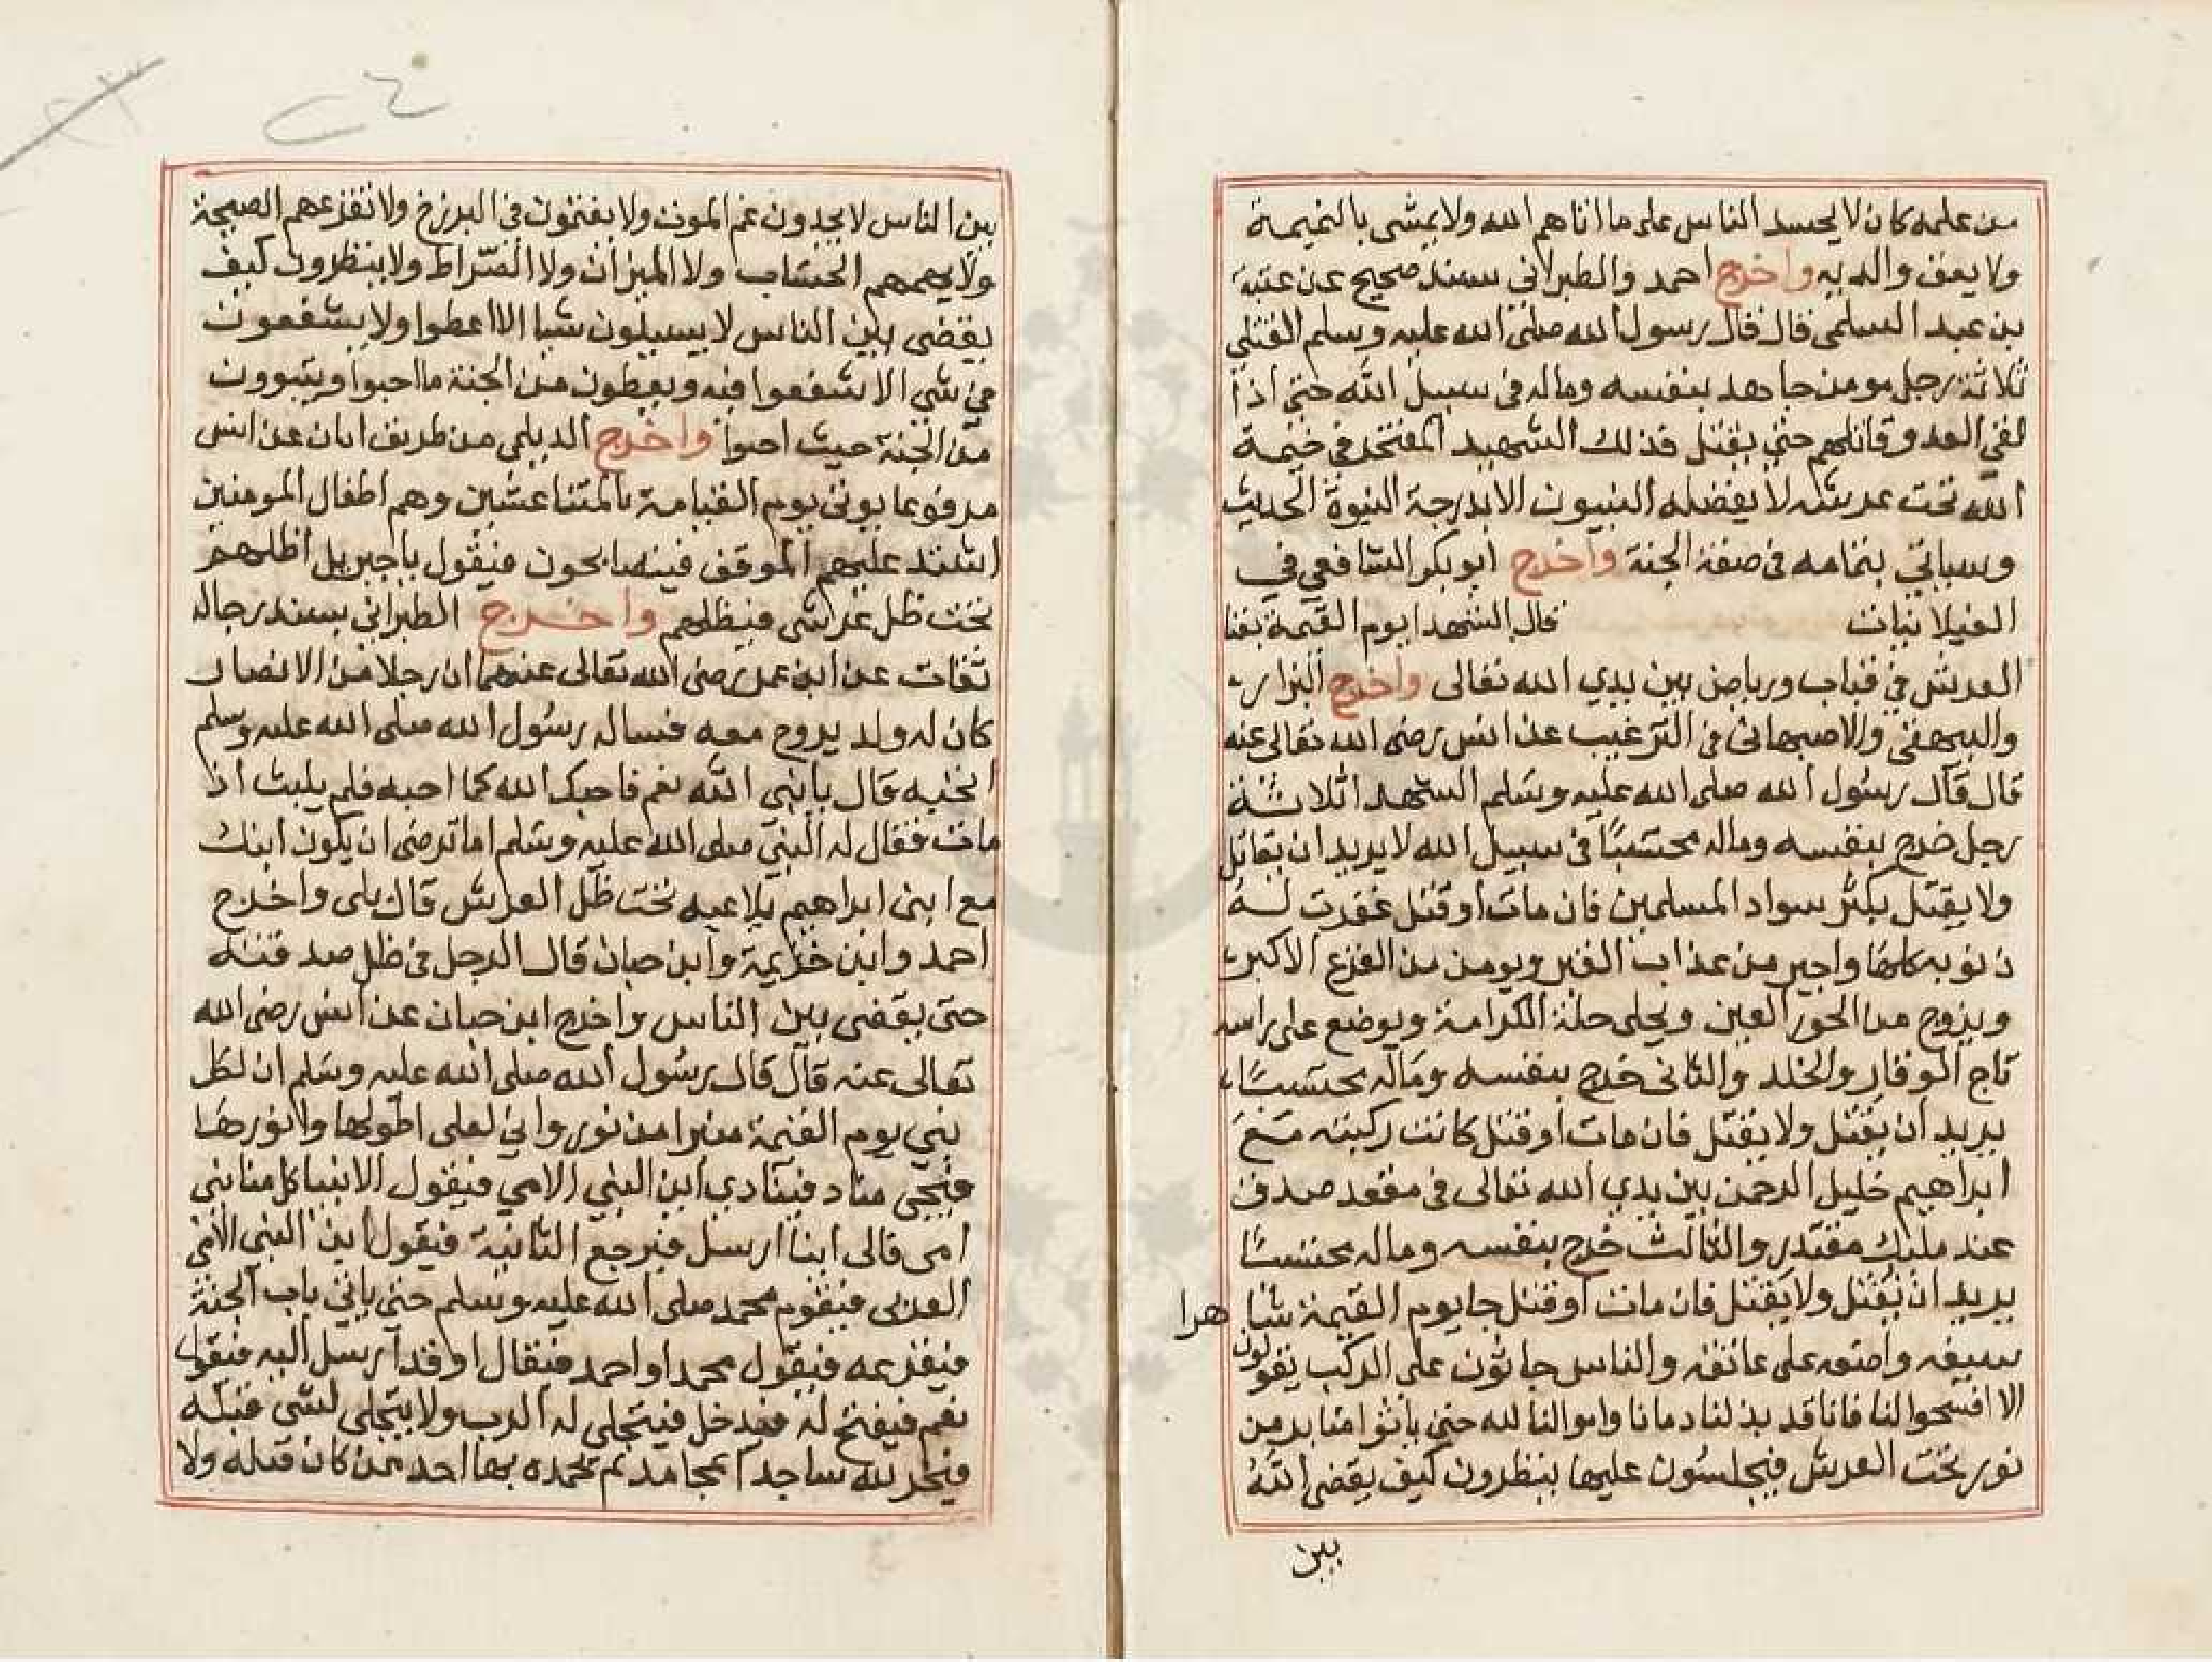 من عمله كان لا يحسد الناس على ما اتاهم الله ولا يمشى بالنميمة
ولا يعق والديه واخرج احمد والطبرانى بسند صحيح عن عتبة
بن عبد السلمى قال قال رسول الله صلى الله عليه وسلم القتلى
ثلاثة رجل مومن جاهد بنفسه وماله فى سبيل الله حتى اذا
لقى العدو قاتلهم حتى يقتل فذلك الشهيد المفتخر فى خيمة
الله تحت عرشه لا يفضله النبيون الا بدرجة النبوة الحديث
وسياتى بتمامه فى صفة الجنة واخرج ابو بكر الشافعى فى
الغيلانيات قال الشهدا يوم القيمة بفنا
العرش فى قباب ورياض بين يدي الله تعالى واخرج البزار
والبيهقى والاصبهانى فى الترغيب عن انس رضى الله تعالى عنه
قال قال رسول الله صلى الله عليه وسلم الشهدا ثلاثة
رجل خرج بنفسه وماله محتسبًا فى سبيل الله لا يريد ان يقاتل
ولا يقتل يكثر سواد المسلمين فان مات او قتل غفرت له
ذنوبه كلها واجير من عذاب القبر ويومن من الفزع الاكبر
ويزوج من الحور العين ويحلى حلة الكرامة ويوضع على راسه
تاج الوقار والخلد والثانى خرج بنفسه وماله محتسبًا
يريد ان يقتل ولا يقتل فان مات او قتل كانت ركبته مع
ابراهيم خليل الرحمن بين يدي الله تعالى فى مقعد صدق
عند مليك مقتدر والثالث خرج بنفسه وماله محتسبًا
يريد ان يقتل ولا يقتل فان مات او قتل جا يوم القيمة شاهرا
بسيفه واضعه على عاتقه والناس جاثون على الركب يقولون
الا افسحوا لنا فانا قد بذلنا دمانا واموالنا لله حتى ياتوا منابر من
نور تحت العرش فيجلسون عليها ينظرون كيف يقضى الله
بين
٢٤
بين الناس لا يجدون غم الموت ولا يغتمون فى البرزخ ولا تفزعهم الصيحة
ولا يهمهم الحساب ولا الميزان ولا الصراط ولا ينظرون كيف
يقضى بين الناس لا يسيلون شيا الا اعطوا ولا يشفعون
فى شى الا شفعوا فيه ويعطون من الجنة ما احبوا ويتبوون
من الجنة حيث احبوا واخرج الديلمى من طريف ابان عن انس
مرفوعا يوتى يوم القيامة وهم اطفال المومنين
اشتد عليهم الموقف فيتصايحون فيقول يا جبريل اظلهم
تحت ظل عرشى فيظلهم واخرج الطبرانى بسند رجاله
ثقات عن ابن عمر رضى الله تعالى عنهما ان رجلا من الانصار
كان له ولد يروح معه فساله رسول الله صلى الله عليه وسلم
اتحبه قال يا نبى الله نعم فاحبك الله كما احبه فلم يلبث اذ
مات فقال له النبى صلى الله عليه وسلم اما ترضى ان يكون ابنك
مع ابنى ابراهيم يلاعبه تحت ظل العرش قال بلى واخرج
احمد وابن خزيمة وابن حبان قال الرجل فى ظل صدقته
حتى يقضى بين الناس واخرج ابن حبان عن انس رضى الله
تعالى عنه قال قال رسول الله صلى الله عليه وسلم ان لكل
نبى يوم القيمة منبرا من نور وانى لعلى اطولها وانورها
فيجى مناد فينادي اين النبى الامى فيقول الانبيا كلنا نبى
امى فالى اينا ارسل فيرجع الثانية فيقول اين النبى الامى
العربى فيقوم محمد صلى الله عليه وسلم حتى ياتى باب الجنة
فيقرعه فيقول محمد او احمد فيقال او قد ارسل اليه فيقول
نعم فيفتح له فيدخل فيتجلى له الرب ولا يتجلى لشى قبله
فيخر لله ساجدا بمحامد لم يحمده بها احد ممن كان قبله ولا